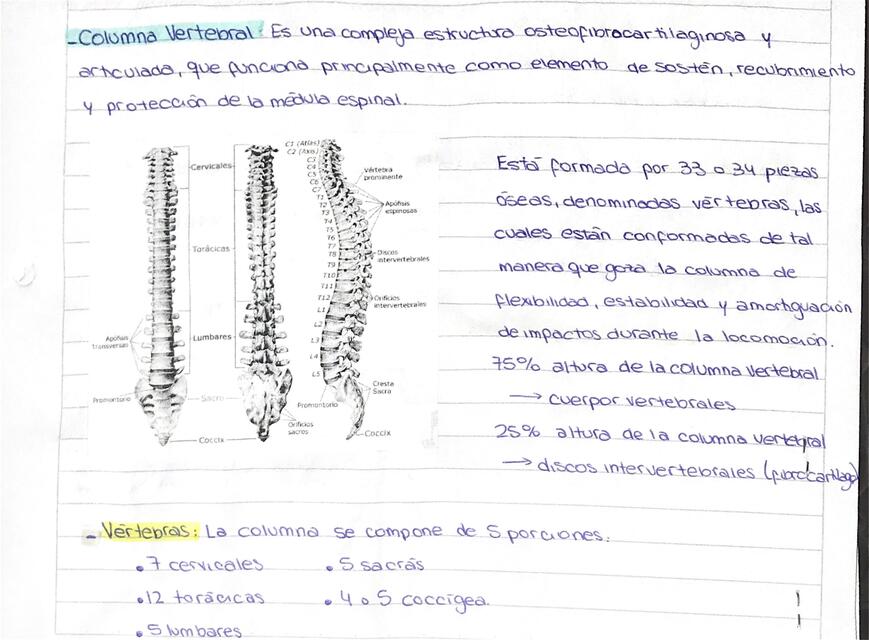 - Columna Vertebral: Es una compleja estructura osteofibrocartilaginosa y
articulada, que funciona principalmente como elemento de sostén, recubrimiento
y protección de la médula espinal.
Cervicales
Torácicas
Lumbares
Apófisis
transversas
Promontorio
Sacro
Coccix
Orificios
sacros
C1 (Atlas)
C2 (Axis)
C3
C4
C5
C6
C7
T1
T2
T3
T4
T5
T6
T7
T8
T9
T10
T11
T12
L1
L2
L3
L4
L5
Vértebra
prominente
Apófisis
espinosas
Discos
intervertebrales
Orificios
intervertebrales
Cresta
Sacra
Promontorio
Coccix
Está formada por 33 o 34 piezas
óseas, denominadas vértebras, las
cuales están conformadas de tal
manera que goza la columna de
flexibilidad, estabilidad y amortiguación
de impactos durante la locomoción.
75% altura de la columna vertebral
→ cuerpor vertebrales
25% altura de la columna vertebral
→ discos intervertebrales (fibrocartilago)
- Vértebras: La columna se compone de 5 porciones.
• 7 cervicales • 5 sacrás
• 12 torácicas • 4 o 5 coccígea.
• 5 lumbares